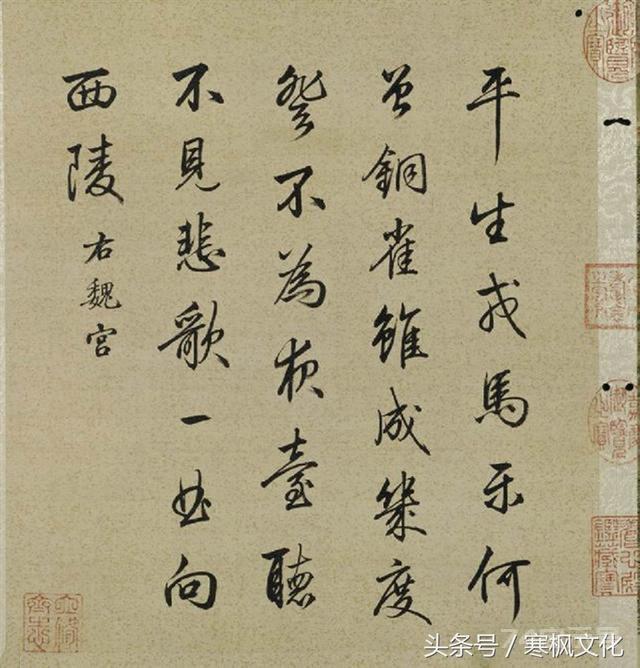 平生戎馬樂何
曾銅雀雖成幾度
登不為夜臺聽
不見悲歌一曲向
西陵 右魏宮
头条号／寒枫文化